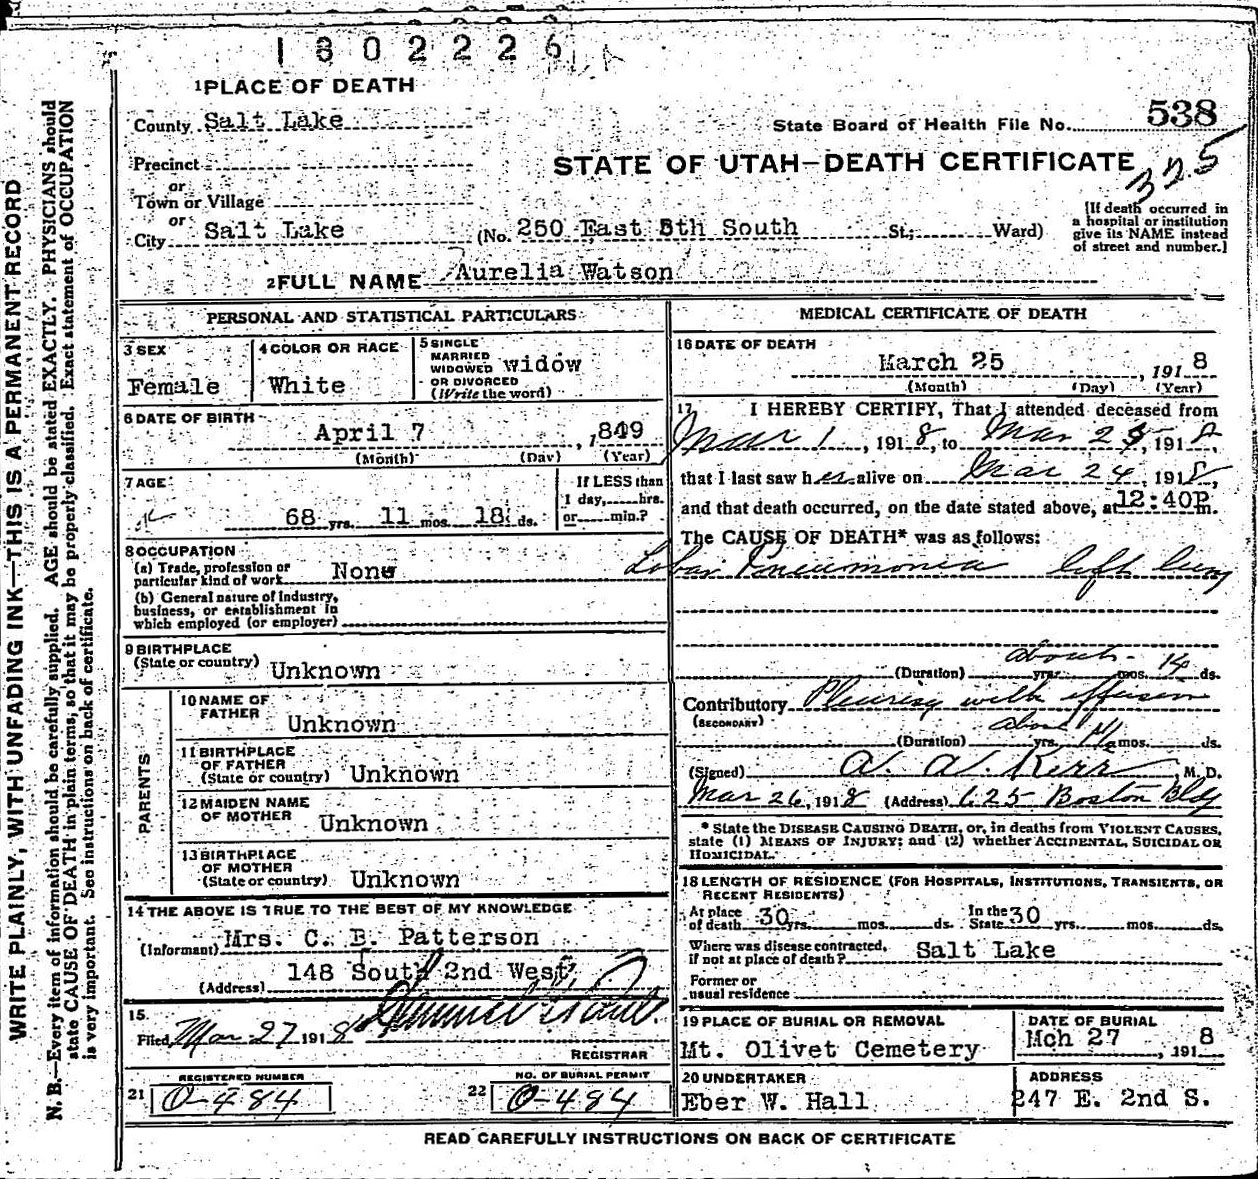 1802226
1 PLACE OF DEATH
County Salt Lake
State Board of Health File No. 538
Precinct
STATE OF UTAH—DEATH CERTIFICATE
325
or
Town or Village
or
City Salt Lake (No. 250 East 5th South St.; Ward)
[If death occurred in
a hospital or institution
give its NAME instead
of street and number.]
2 FULL NAME Aurelia Watson
PERSONAL AND STATISTICAL PARTICULARS
3 SEX
Female
4 COLOR OR RACE
White
5 SINGLE
MARRIED
WIDOWED widow
OR DIVORCED
(Write the word)
6 DATE OF BIRTH
April 7, 1849
(Month) (Day) (Year)
7 AGE
68 yrs. 11 mos. 18 ds.
If LESS than
1 day, hrs.
or min.?
8 OCCUPATION
(a) Trade, profession or
particular kind of work None
(b) General nature of industry,
business, or establishment in
which employed (or employer)
9 BIRTHPLACE
(State or country) Unknown
PARENTS
10 NAME OF
FATHER Unknown
11 BIRTHPLACE
OF FATHER
(State or country) Unknown
12 MAIDEN NAME
OF MOTHER Unknown
13 BIRTHPLACE
OF MOTHER
(State or country) Unknown
14 THE ABOVE IS TRUE TO THE BEST OF MY KNOWLEDGE
(Informant) Mrs. C. E. Patterson
(Address) 148 South 2nd West,
15
Filed Mar 27 1918
REGISTRAR
21 REGISTERED NUMBER
O-484
22 NO. OF BURIAL PERMIT
O-484
MEDICAL CERTIFICATE OF DEATH
16 DATE OF DEATH
March 25, 1918
(Month) (Day) (Year)
17 I HEREBY CERTIFY, That I attended deceased from
Mar 1, 1918, to Mar 25, 1918,
that I last saw her alive on Mar 24, 1918,
and that death occurred, on the date stated above, at 12:40P m.
The CAUSE OF DEATH* was as follows:
Lobar Pneumonia left lung
(Duration) about yrs. mos. 14 ds.
Contributory Pleurisy with effusion
(SECONDARY)
(Duration) about yrs. mos. ds.
(Signed) A. A. Kerr, M. D.
Mar 26, 1918 (Address) 625 Boston Bldg
* State the DISEASE CAUSING DEATH, or, in deaths from VIOLENT CAUSES,
state (1) MEANS OF INJURY; and (2) whether ACCIDENTAL, SUICIDAL OR
HOMICIDAL.
18 LENGTH OF RESIDENCE (FOR HOSPITALS, INSTITUTIONS, TRANSIENTS, OR
RECENT RESIDENTS)
At place
of death 30 yrs. mos. ds.
In the
State 30 yrs. mos. ds.
Where was disease contracted,
if not at place of death? Salt Lake
Former or
usual residence
19 PLACE OF BURIAL OR REMOVAL
Mt. Olivet Cemetery
DATE OF BURIAL
Mch 27, 1918
20 UNDERTAKER
Eber W. Hall
ADDRESS
247 E. 2nd S.
READ CAREFULLY INSTRUCTIONS ON BACK OF CERTIFICATE
WRITE PLAINLY, WITH UNFADING INK—THIS IS A PERMANENT RECORD
N. B.—Every item of information should be carefully supplied. AGE should be stated EXACTLY. PHYSICIANS should
state CAUSE OF DEATH in plain terms, so that it may be properly classified. Exact statement of OCCUPATION
is very important. See instructions on back of certificate.